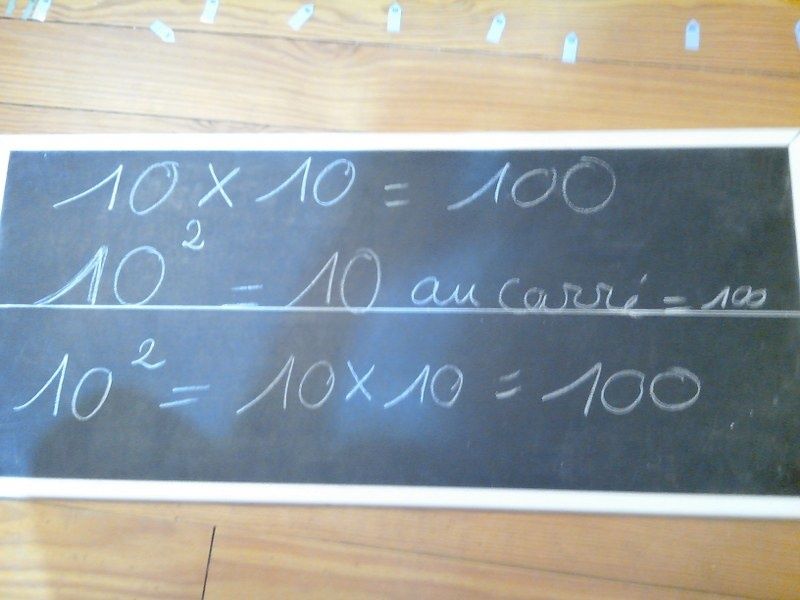 10 × 10 = 100
10² = 10 au carré = 100
10² = 10 × 10 = 100